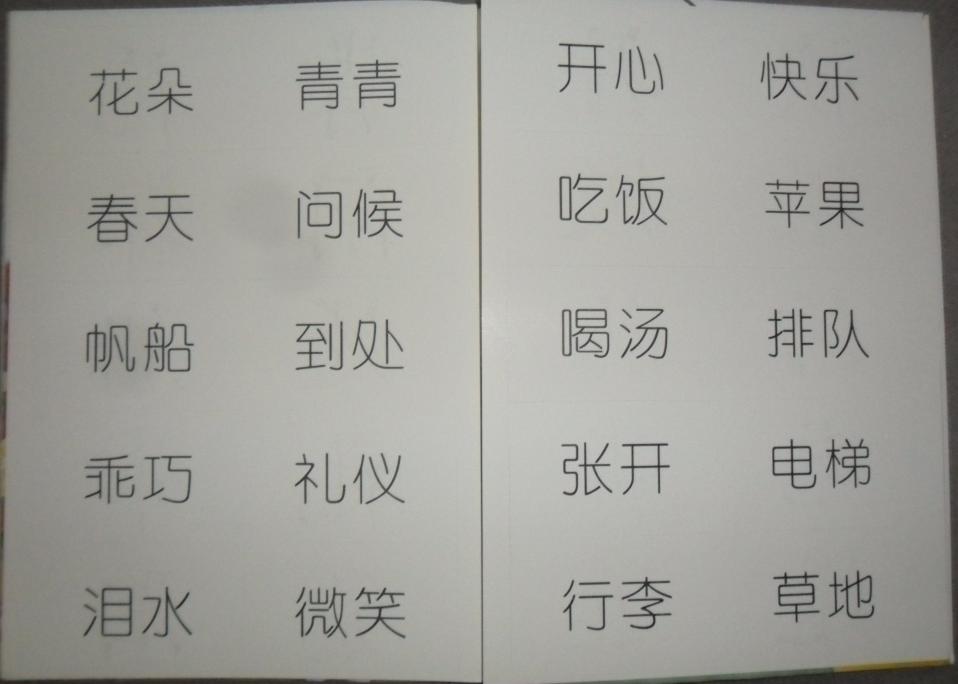 花朵 青青
春天 问候
帆船 到处
乖巧 礼仪
泪水 微笑
开心 快乐
吃饭 苹果
喝汤 排队
张开 电梯
行李 草地